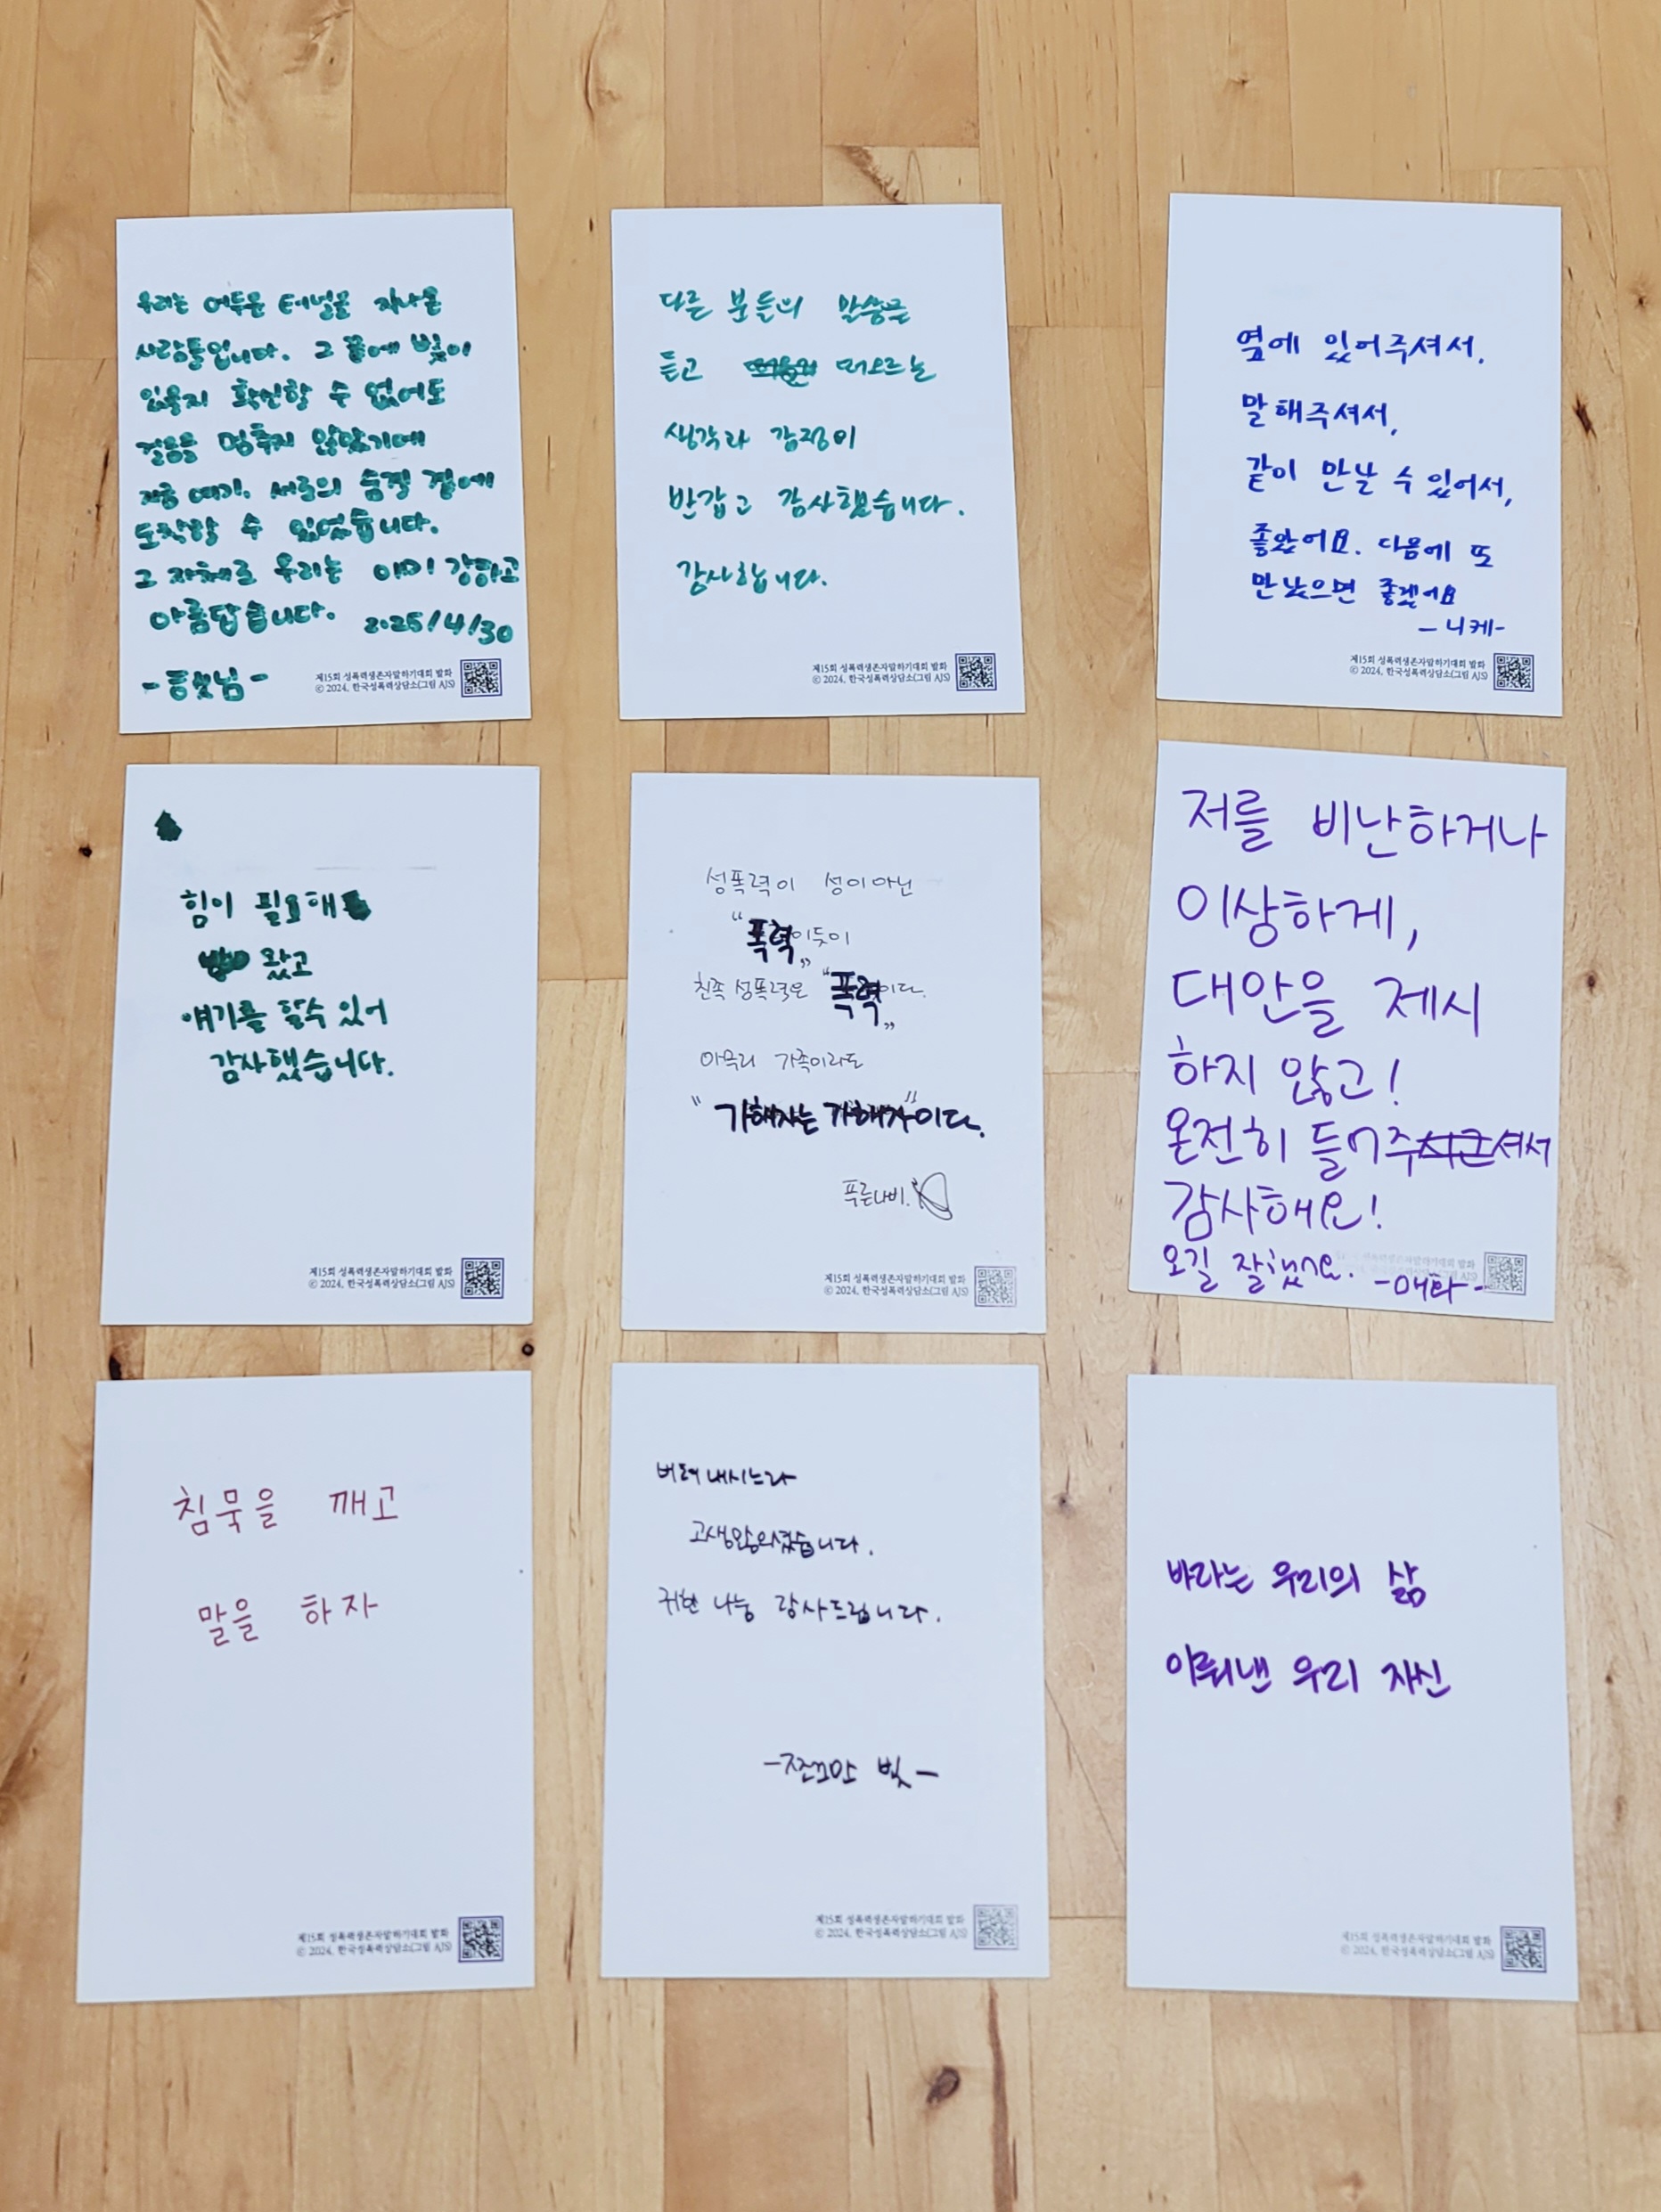 우리는 어두운 터널을 지나온
사람들입니다. 그 끝에 빛이
있을지 확신할 수 없어도
걸음을 멈추지 않았기에
지금 여기, 서로의 숨결 곁에
도착할 수 있었습니다.
그 자체로 우리는 이미 강하고
아름답습니다. 2025/4/30
제15회 성폭력생존자말하기대회 발화
© 2024. 한국성폭력상담소(그림 AJS)
다른 분들의 말씀을
듣고 떠오르는
생각과 감정이
반갑고 감사했습니다.
감사합니다.
제15회 성폭력생존자말하기대회 발화
© 2024. 한국성폭력상담소(그림 AJS)
옆에 있어주셔서,
말해주셔서,
같이 만날 수 있어서,
좋았어요. 다음에 또
만났으면 좋겠어요
-니케-
제15회 성폭력생존자말하기대회 발화
© 2024. 한국성폭력상담소(그림 AJS)
힘이 필요해
왔고
얘기를 할수 있어
감사했습니다.
제15회 성폭력생존자말하기대회 발화
© 2024. 한국성폭력상담소(그림 AJS)
성폭력이 성이아닌
"폭력"이듯이
친족 성폭력은 "폭력"이다.
아무리 가족이라도
"가해자는 가해자"이다.
푸른나비.
제15회 성폭력생존자말하기대회 발화
© 2024. 한국성폭력상담소(그림 AJS)
저를 비난하거나
이상하게,
대안을 제시
하지 않고!
온전히 들어주셔서
감사해요!
오길 잘했어요. -애타-
침묵을 깨고
말을 하자
제15회 성폭력생존자말하기대회 발화
© 2024. 한국성폭력상담소(그림 AJS)
버텨내시느라
고생많으셨습니다.
귀한 나눔 감사드립니다.
-쪼끄만 빛-
제15회 성폭력생존자말하기대회 발화
© 2024. 한국성폭력상담소(그림 AJS)
바라는 우리의 삶
이뤄낸 우리 자신
제15회 성폭력생존자말하기대회 발화
© 2024. 한국성폭력상담소(그림 AJS)